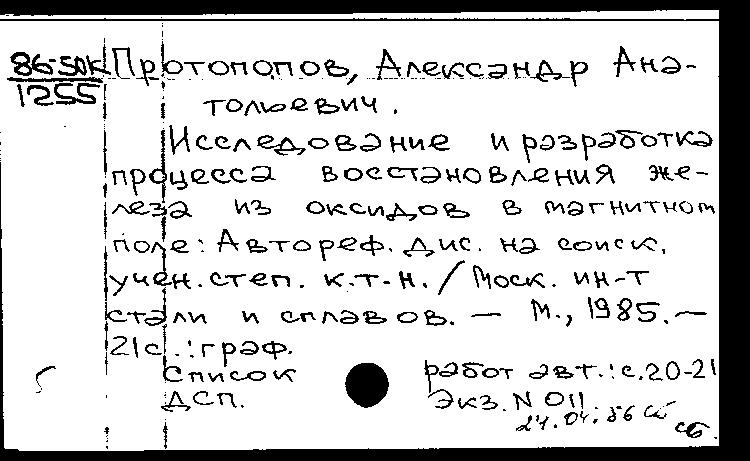 86-50к Протопопов, Александр Ана-
1255 тольевич.
Исследование и разработка
процесса восстановления же-
леза из оксидов в магнитном
поле: Автореф. дис. на соиск.
учен. степ. к.т.н. / Моск. ин-т
стали и сплавов. — М., 1985. —
21с.: граф.
Список работ авт.: с. 20-21
ДСП. Экз. N 011
24.04.86 сб
сб.